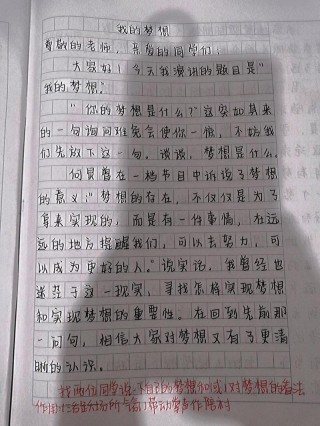 我的梦想
尊敬的老师，亲爱的同学们：
大家好！今天我演讲的题目是“
我的梦想”
“你的梦想是什么？”这突如其来
的一句询问难免会使你一惊，不妨我
们先放下这一句。谈谈，梦想是什么。
何炅曾在一档节目中诉说了梦想
的意义：“梦想的存在，不仅仅是为了
拿来实现的，而是有一件事情，在远
远的地方提醒我们，可以去努力，可
以成为更好的人。”说实话，我曾经也
迷茫于这一现实，寻找怎样实现梦想
和实现梦想的重要性。在回到先前那
一问句，相信大家对梦想又有了更清
晰的认识。
同学说 自己的梦想和 对梦想的看法